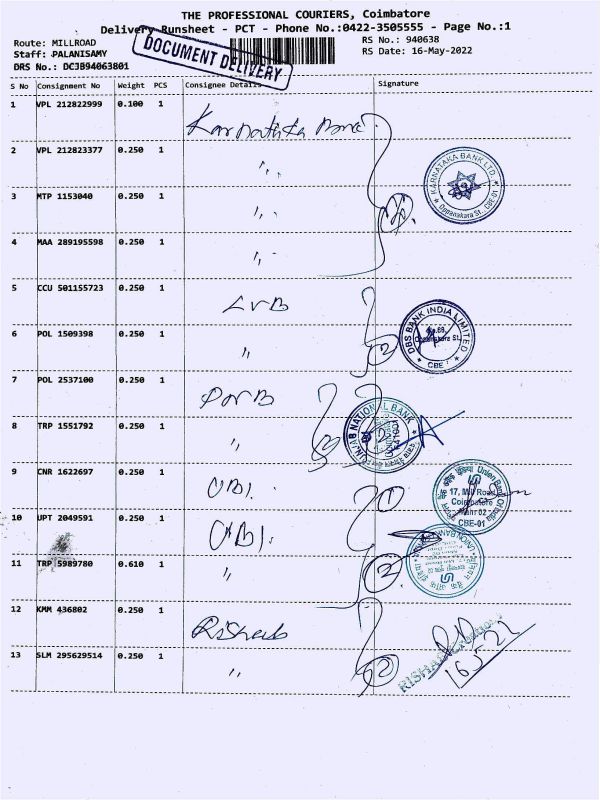 THE PROFESSIONAL COURIERS, Coimbatore
Delivery Runsheet - PCT - Phone No.:0422-3505555 - Page No.:1
Route: MILLROAD
RS No.: 940638
Staff: PALANISAMY
RS Date: 16-May-2022
DRS No.: DCJB94063801
DOCUMENT DELIVERY
S No Consignment No Weight PCS Consignee Details Signature
1 VPL 212822999 0.100 1 Karnataka Bank
2 VPL 212823377 0.250 1 "
3 MTP 1153040 0.250 1 "
4 MAA 289195598 0.250 1 "
KARNATAKA BANK LTD.
Oppanakara St., CBE-01
5 CCU 501155723 0.250 1 LVB
6 POL 1509398 0.250 1 " 2
DBS BANK INDIA LIMITED
No.68,
Oppanakara St.,
CBE
7 POL 2537100 0.250 1 PNB
8 TRP 1551792 0.250 1 " 2
PUNJAB NATIONAL BANK
9 CNR 1622697 0.250 1 UBI. 1
Union Bank of India
17, Mill Road
Coimbatore
Main 02
CBE-01
10 UPT 2049591 0.250 1 UBI.
11 TRP 5989780 0.610 1 " 2
12 KMM 436802 0.250 1 Rishab
13 SLM 295629514 0.250 1 " 2
16.5.22